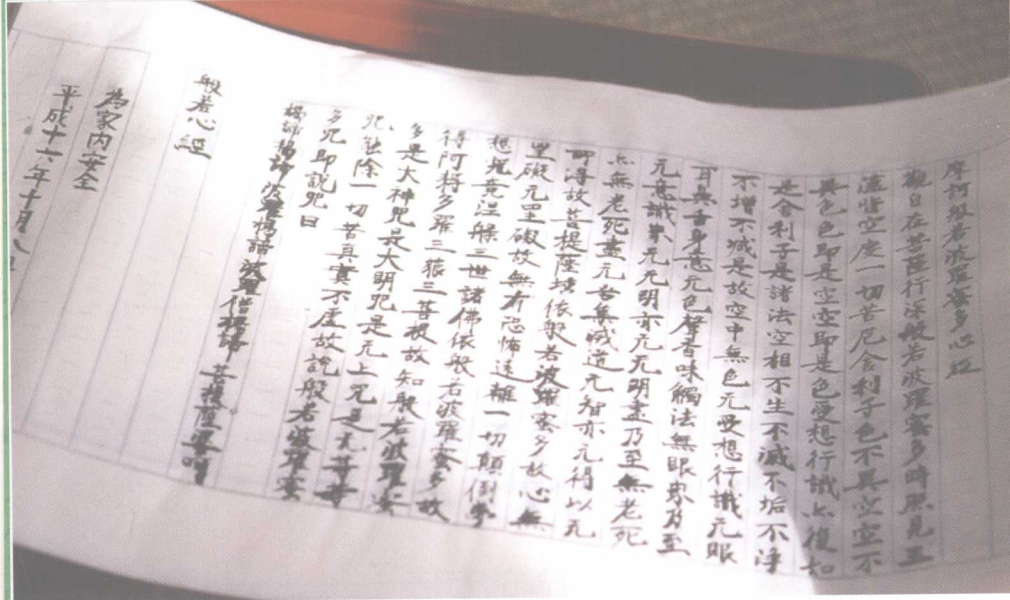 摩訶般若波羅蜜多心経
觀自在菩薩行深般若波羅蜜多時照見五
蘊皆空度一切苦厄舎利子色不異空空不
異色色即是空空即是色受想行識亦復如
是舎利子是諸法空相不生不滅不垢不浄
不増不減是故空中無色无受想行識无眼
耳鼻舌身意无色聲香味觸法無眼界乃至
无意識界无无明亦无无明盡乃至無老死
亦無老死盡无苦集滅道无智亦无得以无
所得故菩提薩埵依般若波羅蜜多故心無
罣礙无罣礙故無有恐怖遠離一切顛倒夢
想究竟涅槃三世諸佛依般若波羅蜜多故
得阿耨多羅三藐三菩提故知般若波羅蜜
多是大神咒是大明咒是无上咒是无等等
咒能除一切苦真實不虚故説般若波羅蜜
多咒即説咒曰
羯諦羯諦波羅羯諦波羅僧羯諦菩提薩婆訶
般若心經
為家内安全
平成十六年十月八